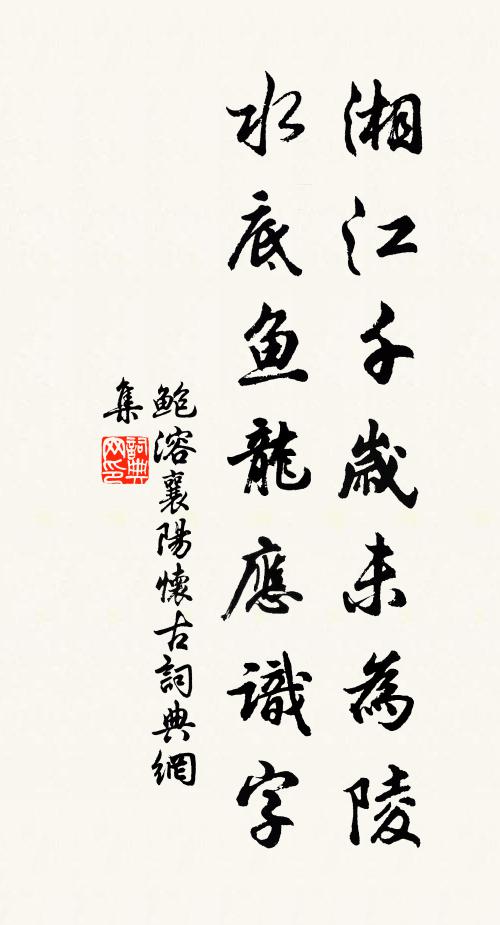 湘江千歲未為陵
水底魚龍應識字
鮑溶襄陽懷古詞典網
集
詞典網印